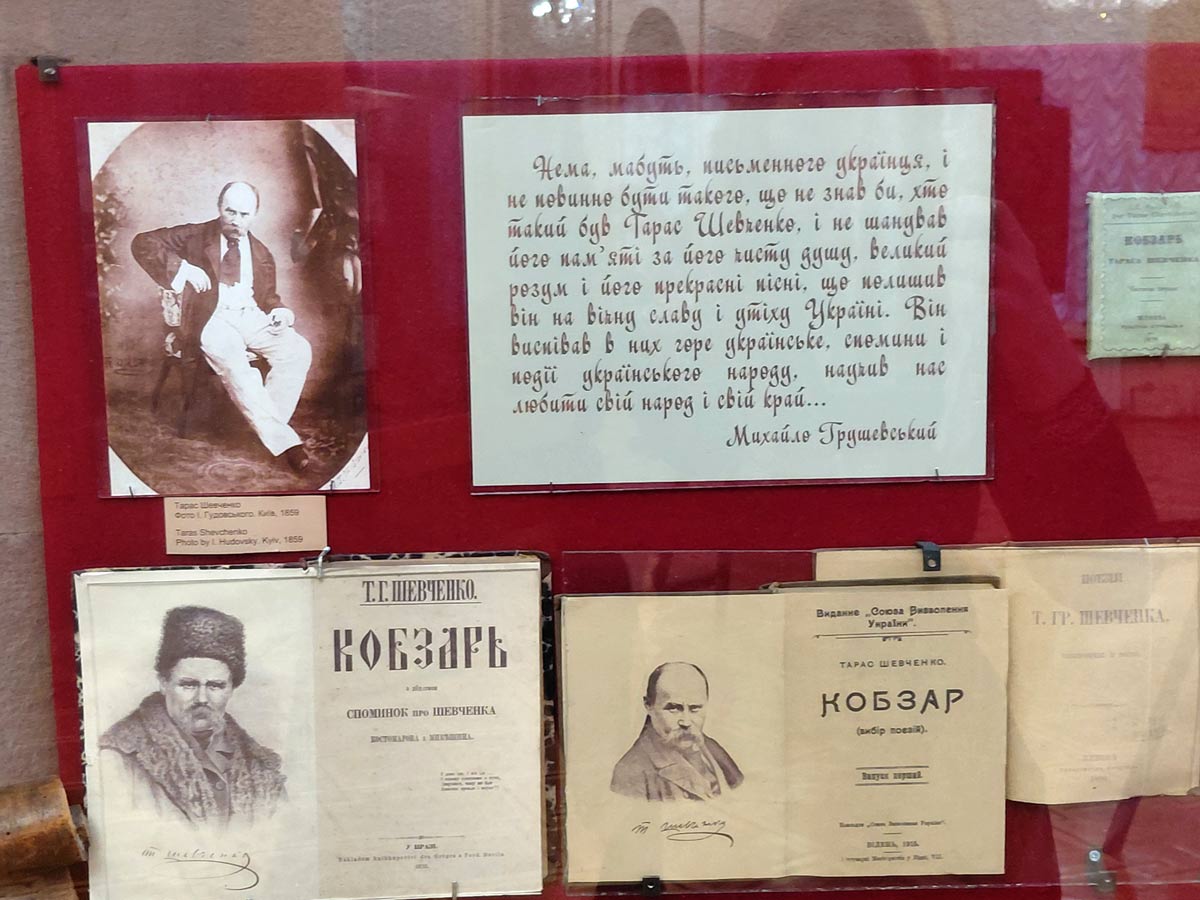 Нема, мабуть, письменного українця, і
не повинно бути такого, що не знав би, хто
такий був Тарас Шевченко, і не шанував
його пам'яті за його чисту душу, великий
розум і його прекрасні пісні, що полишив
він на вічну славу і утіху Україні. Він
виспівав в них горе українське, спомини і
події українського народу, научив нас
любити свій народ і свій край...
Михайло Грушевський
КОБЗАРЬ
ТАРАСА ШЕВЧЕНКА
Тарас Шевченко
Фото І. Гудовського. Київ, 1859
Taras Shevchenko
Photo by I. Hudovsky. Kyiv, 1859
Т. Г. ШЕВЧЕНКО.
КОБЗАРЬ
з
СПОМИНОК про ШЕВЧЕНКА
КОСТОМАРОВА і МИКЕШИНА.
У ПРАЗІ.
Nákladem knihkupectví
Т Шевченко
Видання „Союза Визволення
України".
ТАРАС ШЕВЧЕНКО.
КОБЗАР
(вибір поезій).
Випуск перший.
Накладом „Союза Визволення України".
ВІДЕНЬ, 1915.
Т Шевченко
ПОЕЗІЇ
Т. ГР. ШЕВЧЕНКА.